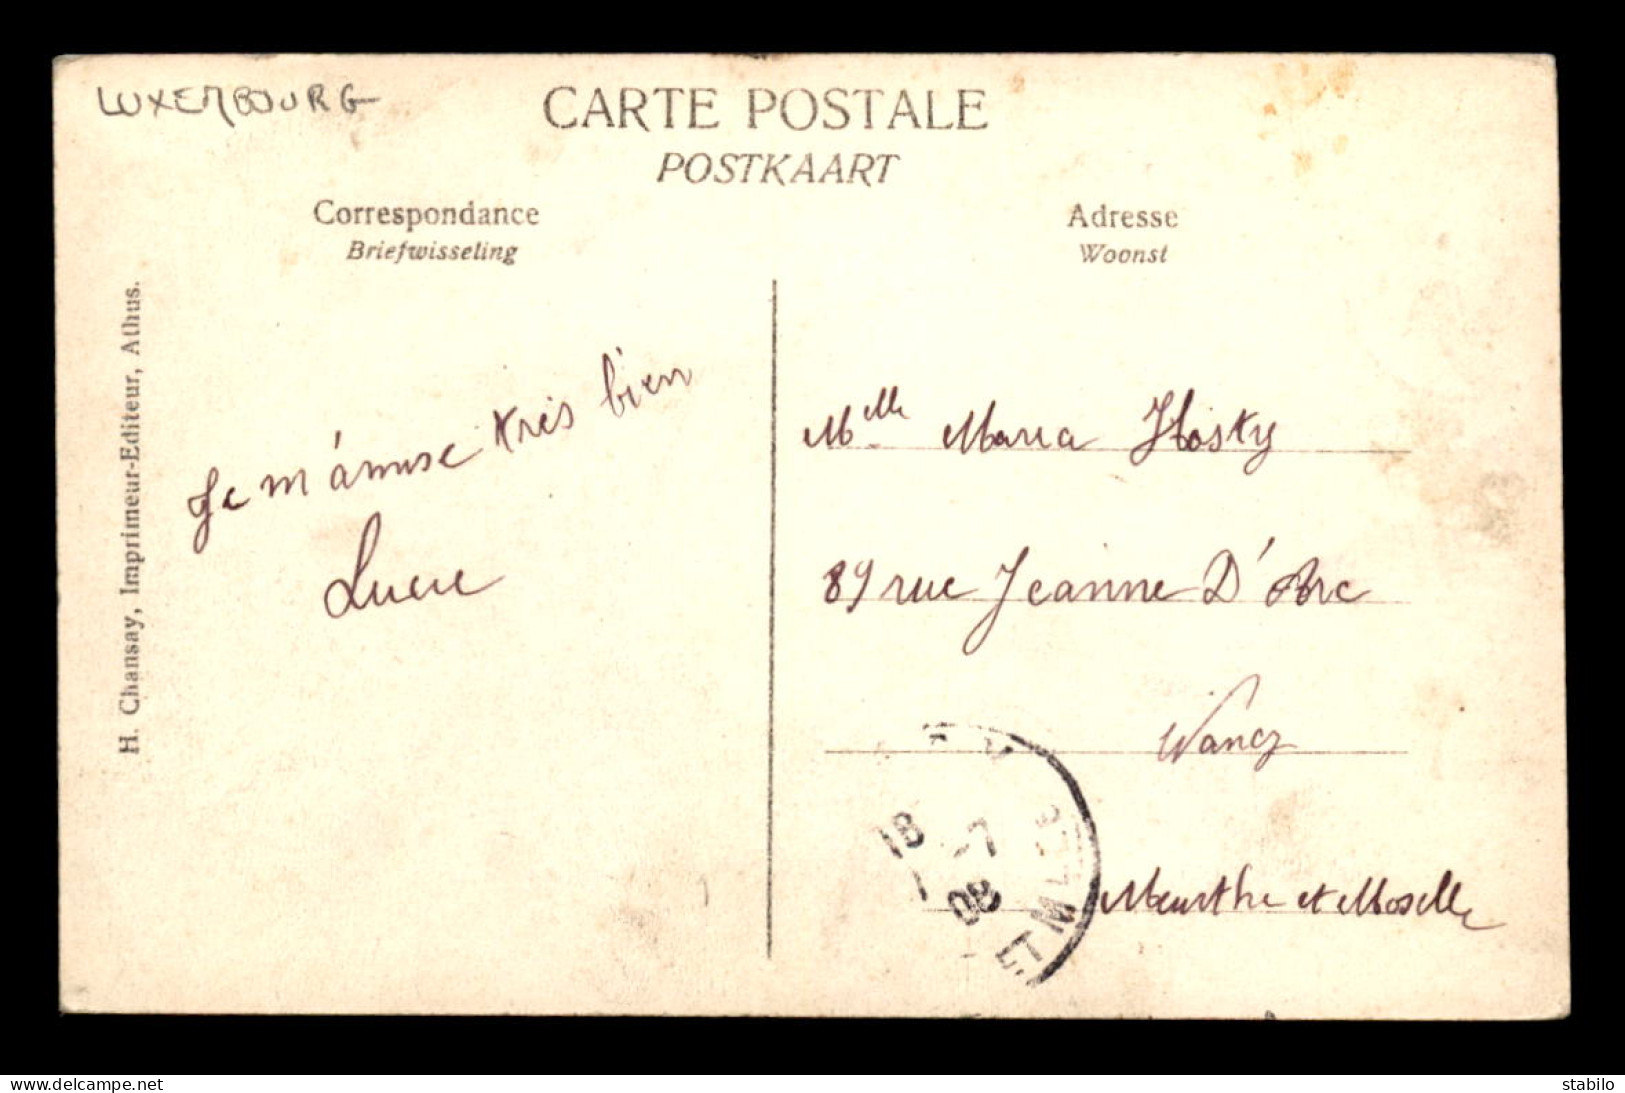 LUXEMBOURG
CARTE POSTALE
POSTKAART
Correspondance
Briefwisseling
Adresse
Woonst
H. Chansay, Imprimeur-Editeur, Athus.
Je m'amuse très bien
Lucie
Melle Maria Hosky
89 rue Jeanne D'Arc
Nancy
Meurthe et Moselle
18 -7
08
ET M
www.delcampe.net
stabilo